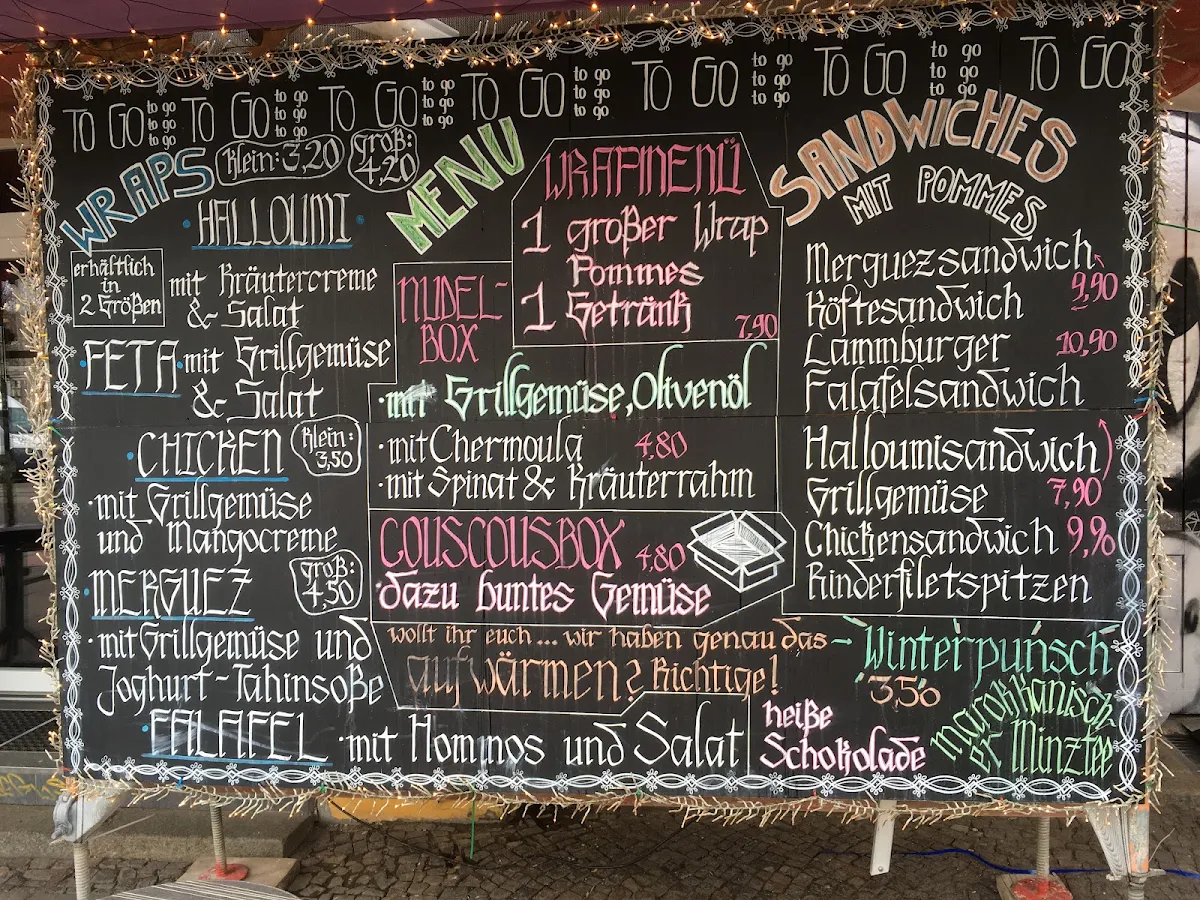 TO GO to go to go to go TO GO to go to go to go TO GO to go to go to go TO GO to go to go to go TO GO to go to go to go TO GO to go to go to go TO GO
WRAPS
Klein: 3,20
groß: 4,20
·HALLOUMI·
erhältlich
in
2 Größen
mit Kräutercreme
& Salat
·FETA· mit Grillgemüse
& Salat
·CHICKEN
Klein:
3,50
·mit Grillgemüse
und Mangocreme
·MERGUEZ
groß:
4,50
·mit Grillgemüse und
Joghurt-Tahinsoße
·FALAFEL ·mit Hommos und Salat
MENU
WRAPMENÜ
1 großer Wrap
Pommes
1 Getränk
7,90
NUDEL-
BOX
·mit Grillgemüse, Olivenöl
·mit Chermoula 4,80
·mit Spinat & Kräuterrahm
COUSCOUSBOX 4,80
·dazu buntes Gemüse
SANDWICHES
MIT POMMES
Merguezsandwich
9,90
Köftesandwich
Lammburger 10,90
Falafelsandwich
Halloumisandwich
Grillgemüse 7,90
Chickensandwich 9,90
Rinderfiletspitzen
wollt ihr euch... wir haben genau das
aufwärmen? Richtige!
- Winterpunsch
3,50
heiße
Schokolade
marokkanisch-
er Minztee